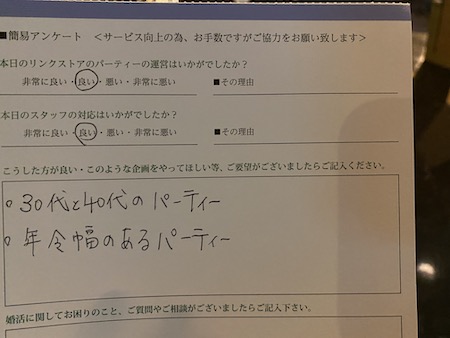 ■簡易アンケート ＜サービス向上の為、お手数ですがご協力をお願い致します＞
本日のリンクストアのパーティーの運営はいかがでしたか？
非常に良い・良い・悪い・非常に悪い ■その理由
本日のスタッフの対応はいかがでしたか？
非常に良い・良い・悪い・非常に悪い ■その理由
こうした方が良い・このような企画をやってほしい等、ご要望がございましたらご記入ください。
○ 30代と40代のパーティー
○ 年令幅のあるパーティー
婚活に関してお困りのこと、ご質問やご相談がございましたらご記入下さい。